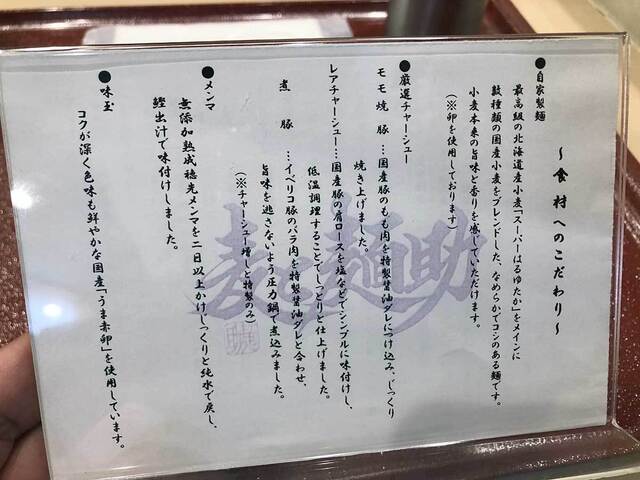 ～食材へのこだわり～
●自家製麺
最高級の北海道産小麦「スーパーはるゆたか」をメインに
数種類の国産小麦をブレンドした、なめらかでコシのある麺です。
小麦本来の旨味と香りを感じていただけます。
(※卵を使用しております)
●厳選チャーシュー
モモ焼豚…国産豚のもも肉を特製醤油ダレにつけ込み、じっくり
焼き上げました。
レアチャーシュー…国産豚の肩ロースを塩などでシンプルに味付けし、
低温調理することでしっとりと仕上げました。
煮豚…イベリコ豚のバラ肉を特製醤油ダレと合わせ、
旨味を逃さないよう圧力鍋で煮込みました。
(※チャーシュー増しと特製のみ)
●メンマ
無添加熟成穂先メンマを二日以上かけじっくりと純水で戻し、
鰹出汁で味付けしました。
●味玉
コクが深く色味も鮮やかな国産「うま赤卵」を使用しています。
麦と麺助